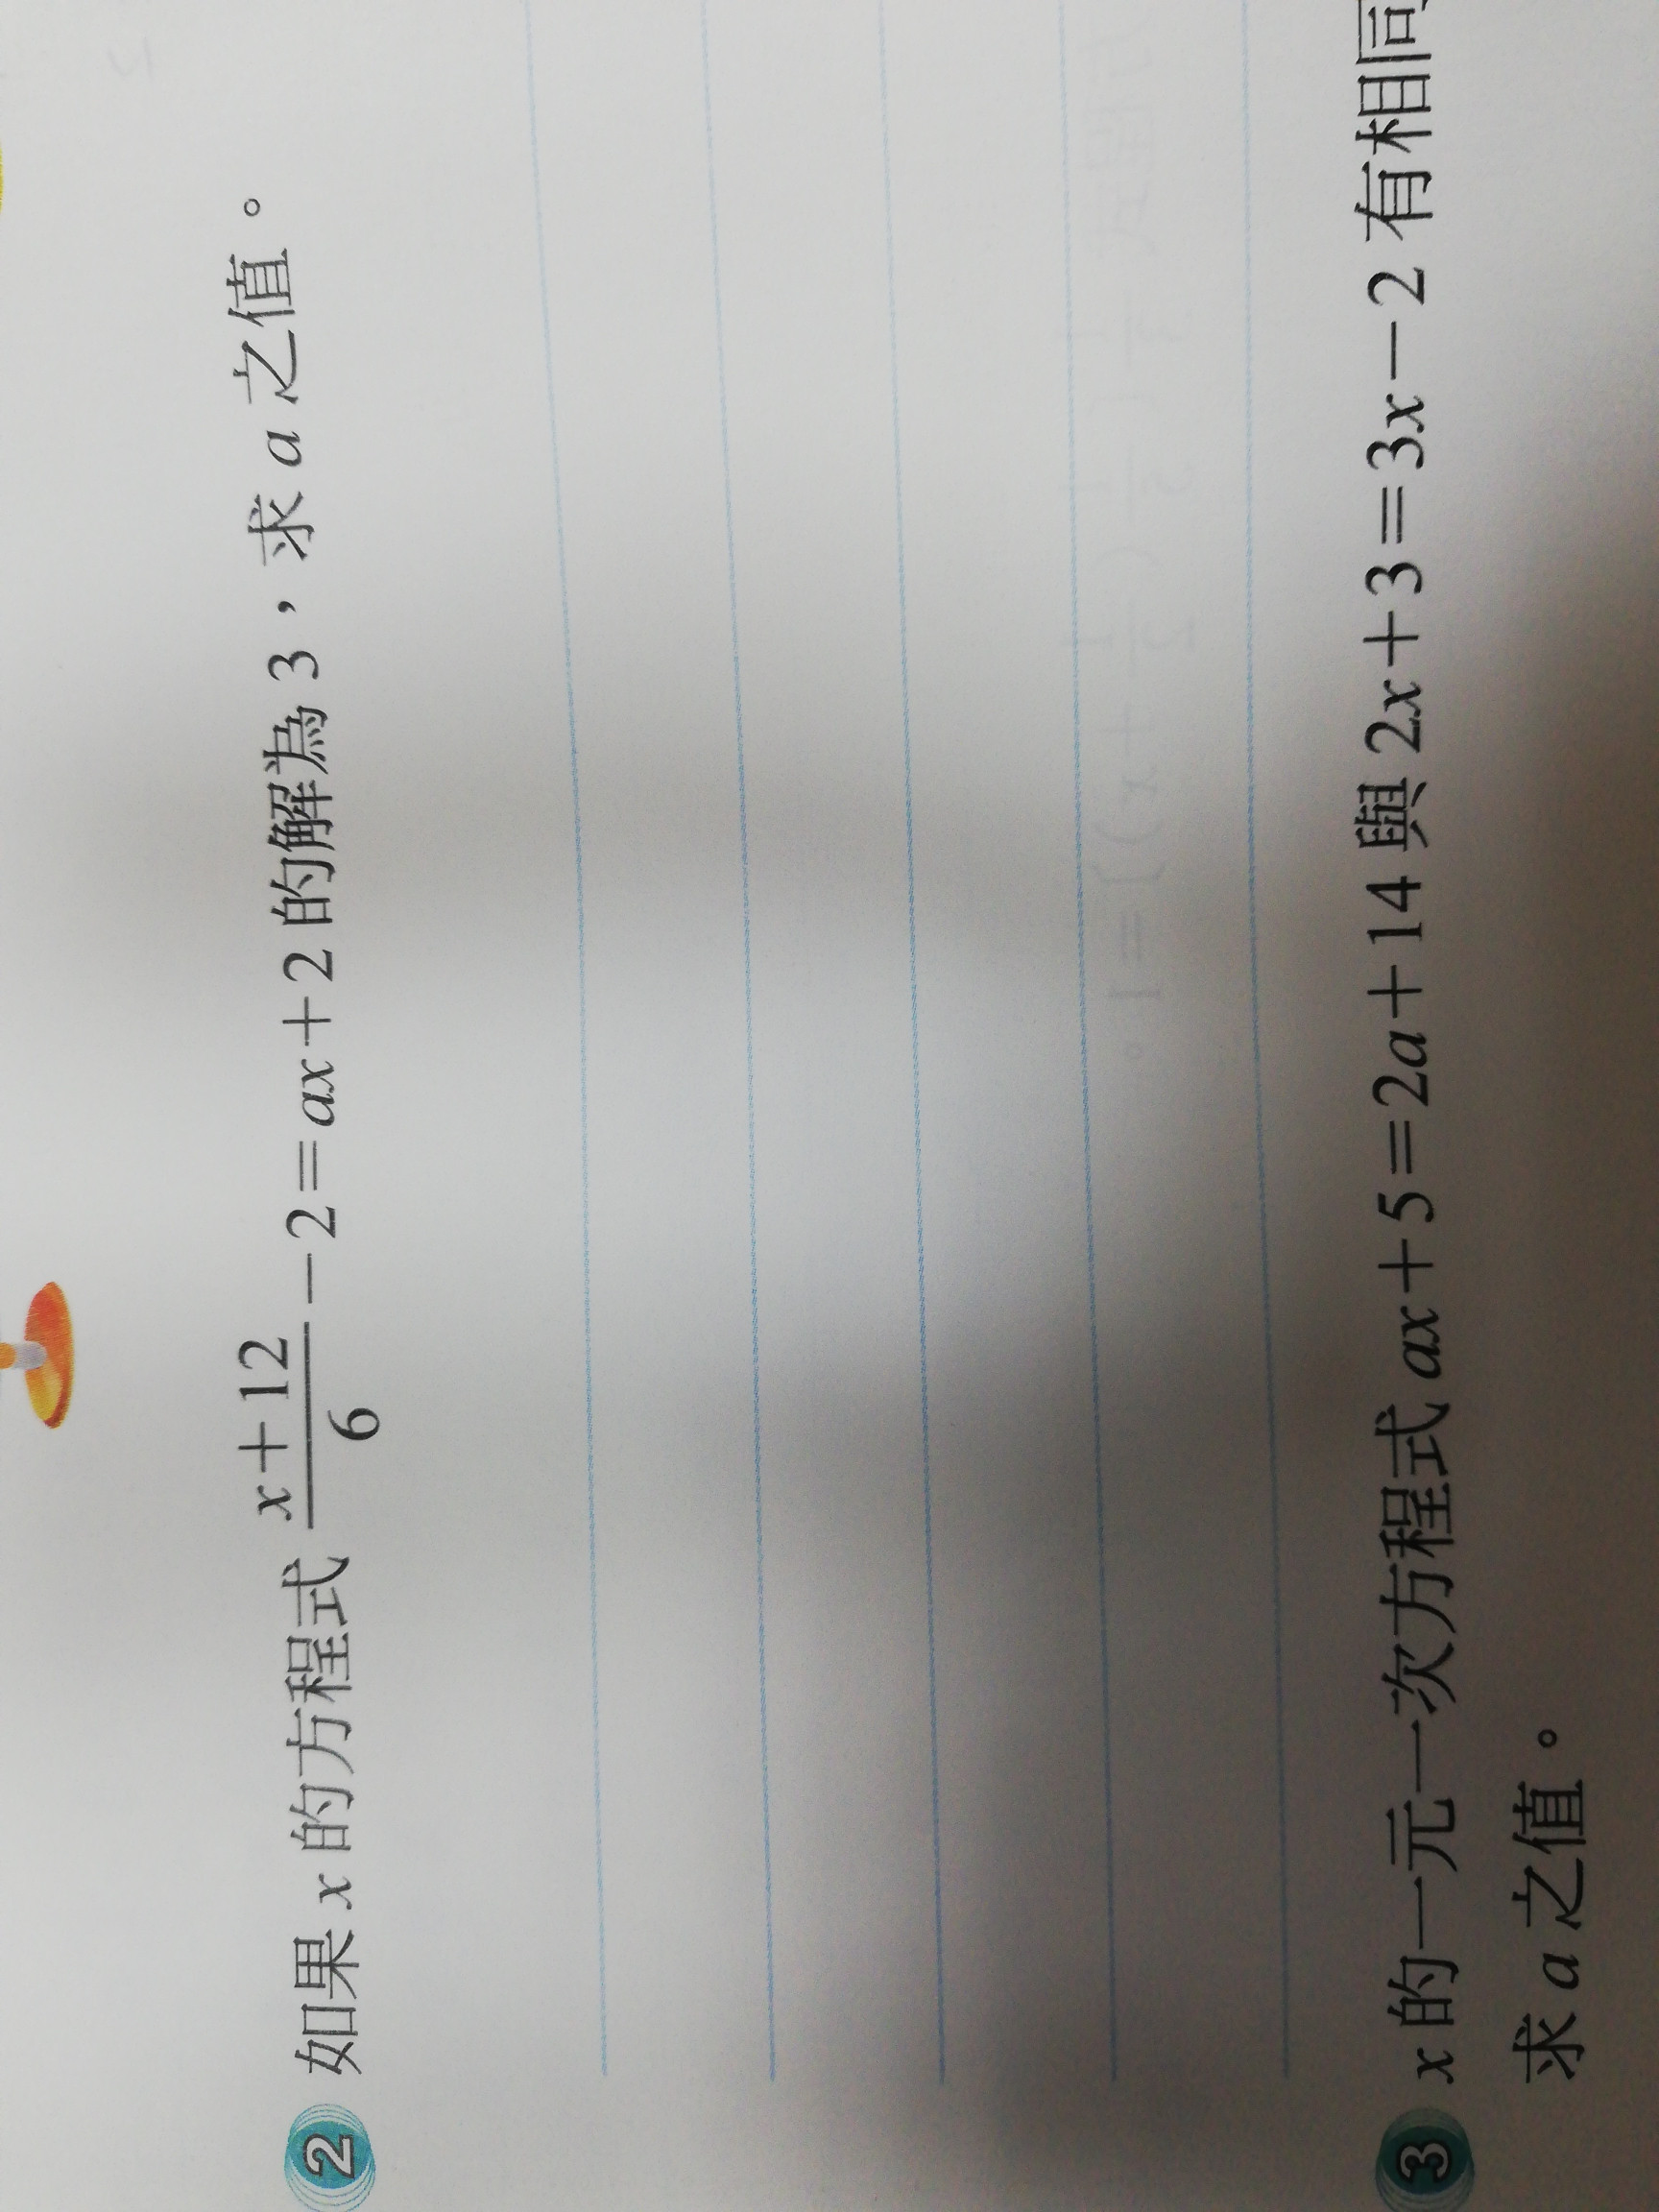 2 如果 x 的方程式 \frac{x+12}{6}-2=ax+2 的解為 3，求 a 之值。
3 x 的一元一次方程式 ax+5=2a+14 與 2x+3=3x-2 有相同
求 a 之值。